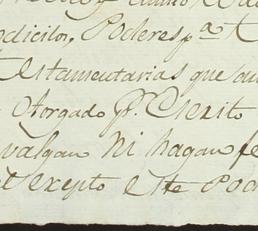 odicilos, Poderes pª t
estamentarias que au
otorgado pr. Escrito
valgan ni hagan fe
et exepto este Pod